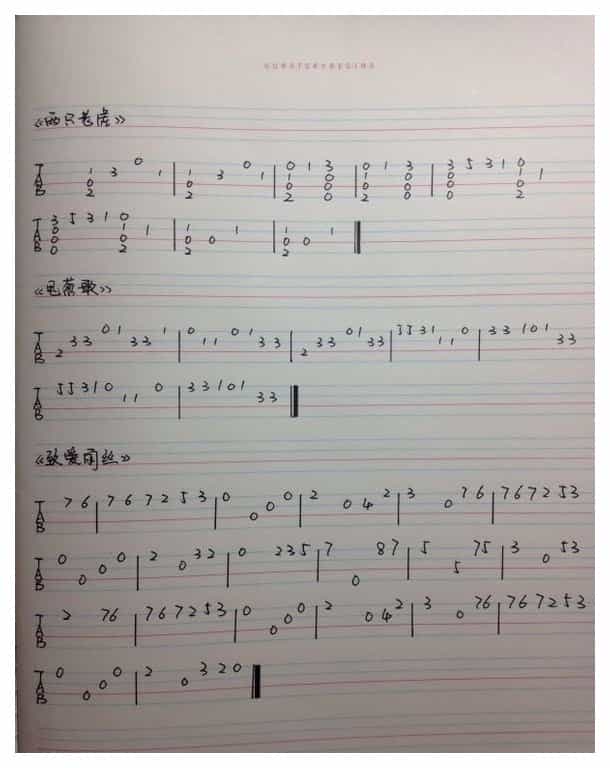 《两只老虎》
TAB 1 0 2 3 0 1 | 1 0 2 3 0 1 | 0 1 0 0 2 1 3 0 0 0 | 0 1 0 0 2 1 3 0 0 0 | 3 0 0 0 5 3 1 0 1 0 2 1
TAB 3 0 0 0 5 3 1 0 1 0 2 1 | 1 0 2 0 1 | 1 0 2 0 1
《甩葱歌》
TAB 2 3 3 0 1 3 3 1 | 0 1 1 0 1 3 3 | 2 3 3 0 1 3 3 | 5 5 3 1 1 1 0 | 3 3 1 0 1 3 3
TAB 5 5 3 1 0 1 1 0 | 3 3 1 0 1 3 3
《致爱丽丝》
TAB 7 6 | 7 6 7 2 5 3 | 0 0 0 0 | 2 0 4 2 | 3 0 7 6 | 7 6 7 2 5 3
TAB 0 0 0 0 | 2 0 3 2 | 0 2 3 5 | 7 0 8 7 | 5 5 7 5 | 3 0 5 3
TAB 2 7 6 | 7 6 7 2 5 3 | 0 0 0 0 | 2 0 4 2 | 3 0 7 6 | 7 6 7 2 5 3
TAB 0 0 0 0 | 2 0 3 2 0